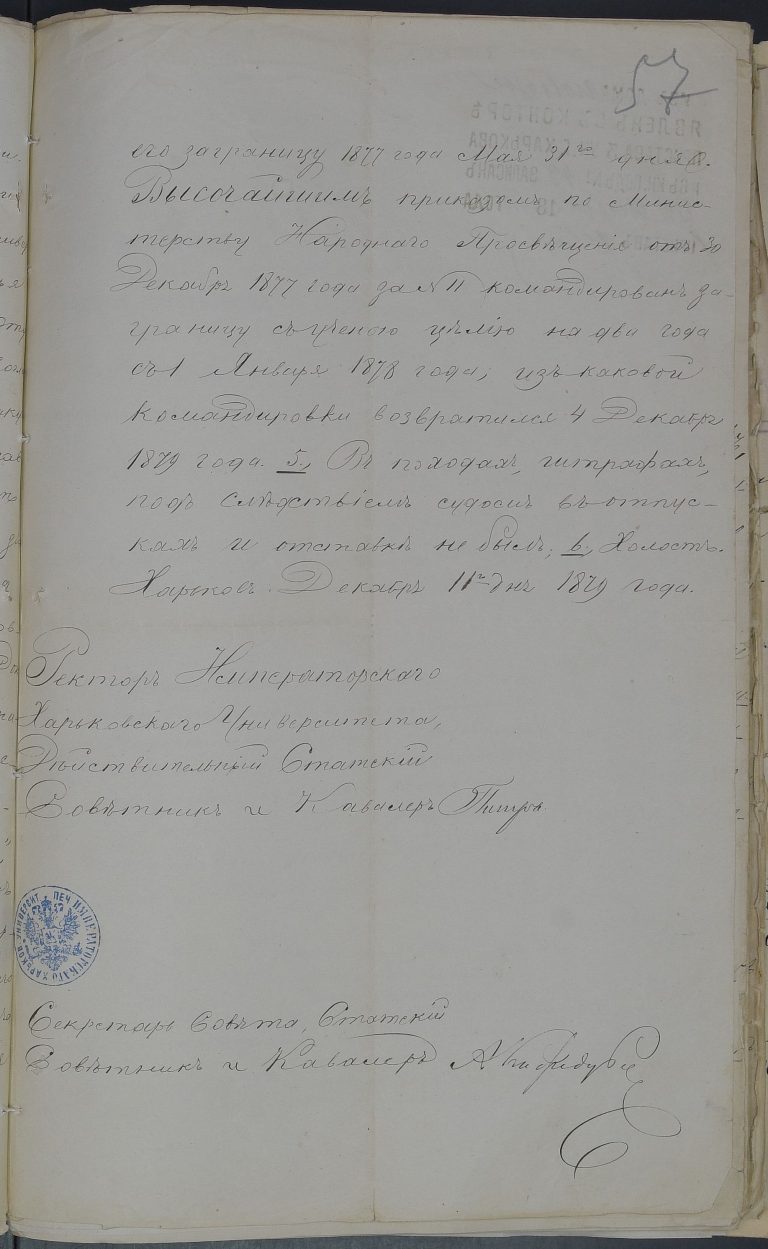 57
его заграницу 1877 года Мая 31го дня.
Высочайшимъ приказомъ по Минис-
терству Народнаго Просвѣщенія отъ 30
Декабря 1877 года за № 11 командированъ за-
границу съ ученою цѣлію на два года
съ 1 Января 1878 года; изъ каковой
командировки возвратился 4 Декабря
1879 года. 5., Въ походахъ, штрафахъ,
подъ слѣдствіемъ судомъ въ отпус-
кахъ и отставкѣ не былъ; 6., Холостъ.
Харьковъ. Декабря 11го дня 1879 года.
Ректоръ Императорскаго
Харьковскаго Университета,
Дѣйствительный Статскій
Совѣтникъ и Кавалеръ Питра
ПЕЧ. ИМПЕРАТОРСКАГО ХАРЬКОВ. УНИВЕРСИТ.
Секретарь Совѣта, Статскій
Совѣтникъ и Кавалеръ